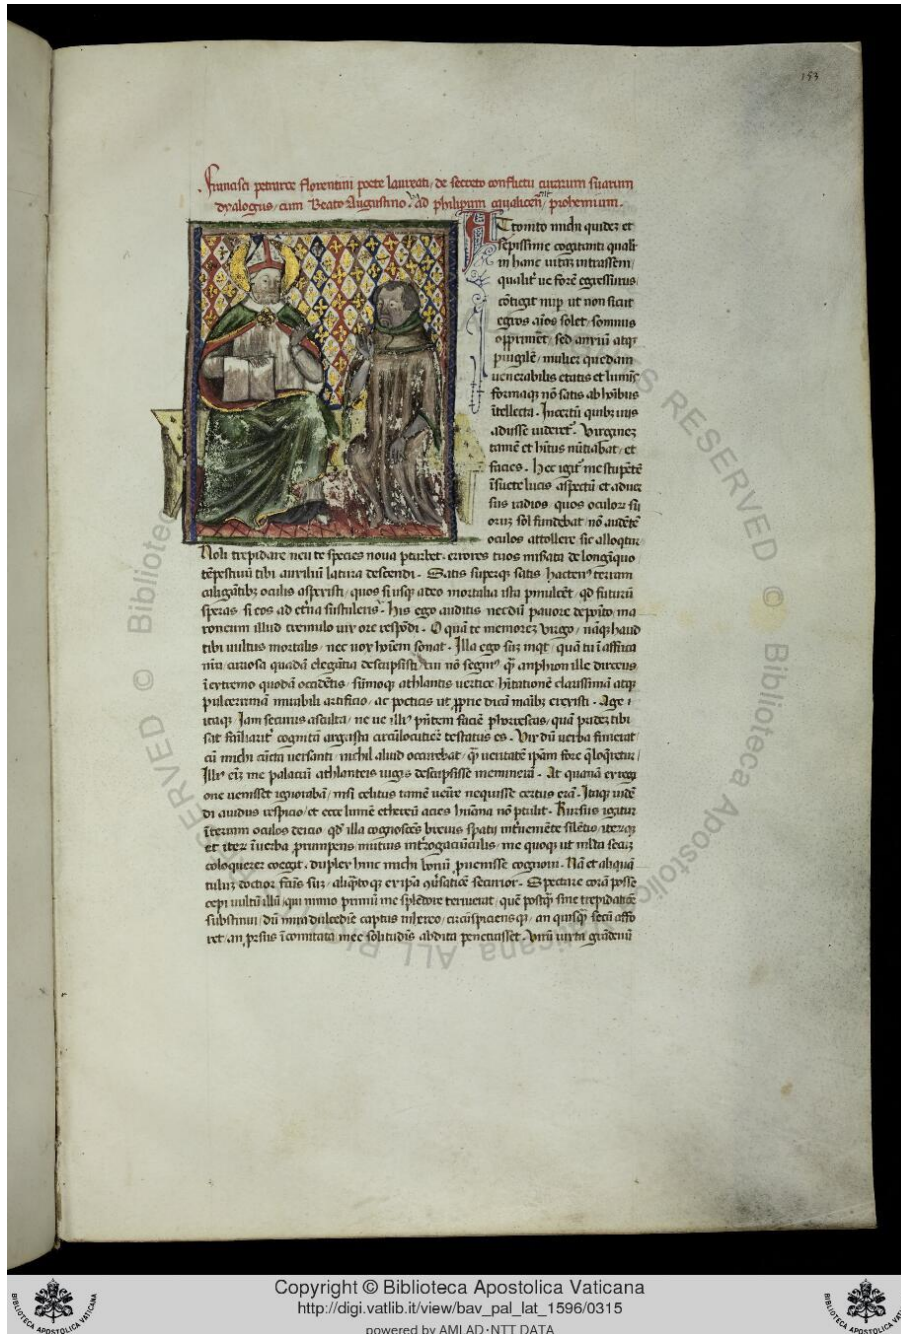 153
Francisci petrarce florentini poete laureati / de secreto conflictu curarum suarum
dyalogus / cum Beato Augustino. Ad philipum cavalicen̄ / prohemium.
Attonito michi quidez et
sepissime cogitanti qualit̃
in hanc uitaz intrassem /
qualit̃ ue forē egressurus
cōtigit nup ut non sicut
egros aīos solet / somnus
opprim̄et / sed anxiū atqꝫ
puigilē / mulier quedam
uenerabilis etatis et lumīs
formaqꝫ nō satis ab hoībus
ītellecta. Incertū quibꝫ uiis
adisse uideret̃. Virginez
tamē et hītus nūtiabat / et
facies. Hec igit̃ me stupētē
īsuete lucis aspectū et aduer
sus radios quos oculoꝝ su
oruꝫ sol fundebat / nō audētē
oculos attollere sic alloqtur
Noli trepidare neu te species noua pturbet. errores tuos mis̄ata de longīquo
tēpestiuū tibi auxiliū latura descendi. Satis superqꝫ satis hacten⁹ terram
caligātibꝫ oculis aspexisti / quos si usqꝫ adeo mortalia ista pmulcēt / qd futurū
speras si eos ad et̄na sustuleris. His ego auditis necdū pauore deposito / ma
roneum illud tremulo uix ore respōdi. O quā te memorez uirgo / nāqꝫ haud
tibi uultus mortalis / nec uox hoīem sonat. Illa ego suꝫ inqt / quā tu ī affrica
nr̄a / curiosa quadā elegātia descripsisti / cui nō segni⁹ q̄ anphion ille dirceus
ī extremo quodā occidētis / sūmoqꝫ athlantis uertice hītationē clarissimā atqꝫ
pulcerrimā mirabili artificio / ac poeticis ut pprie dicā manibꝫ erexisti. Age
itaqꝫ Iam securus asculta / ne ue illi⁹ pn̄tem faciē phorrescas / quā pridez tibi
sat familiarit̃ cognitā argista circūlocutiōe testatus es. Vix dū uerba finierat
cū michi cūcta uersanti / nichil aliud occurrebat / q̄ ueritatē ipam fore q̄ loq̄retur /
Illi⁹ eīz me palaciū athlanteis iugis descripsisse meminerā. At quanā ex regi
one uenisset ignorabā / nisi celitus tamē ueīre nequisse certus erā. Itaqꝫ uidē
di auidus respicio / et ecce lumē ethereū acies hūana nō ptulit. Rursus igitur
ī terram oculos deicio qd illa cognoscēs breuis spatij int̄ueniēte silētio / iterqꝫ
et iter ī uerba prumpens minutis int̄rogatiūculis / me quoqꝫ ut multa secuꝫ
coloquerer coegit. dupliex hinc michi bonū puenisse cognoui. Nā et aliquā
tuluꝫ doctior factus suꝫ / aliq̄toqꝫ ex ipa cōuersatiōe securior. Spectare corā posse
cepi uultū illū / qui nimio primū me splēdore terruerat / quē postq̄ sine trepidatiōe
substinui / dū mira dulcediē captus inhereo / circūspiciensqꝫ / an quisq̄ secū affo
ret / an prsus ī comitata mee solitudīs abdita penetrasset. Virū iuxta grādeuū
Copyright © Biblioteca Apostolica Vaticana
http://digi.vatlib.it/view/bav_pal_lat_1596/0315
powered by AMLAD·NTT DATA
BIBLIOTECA APOSTOLICA VATICANA